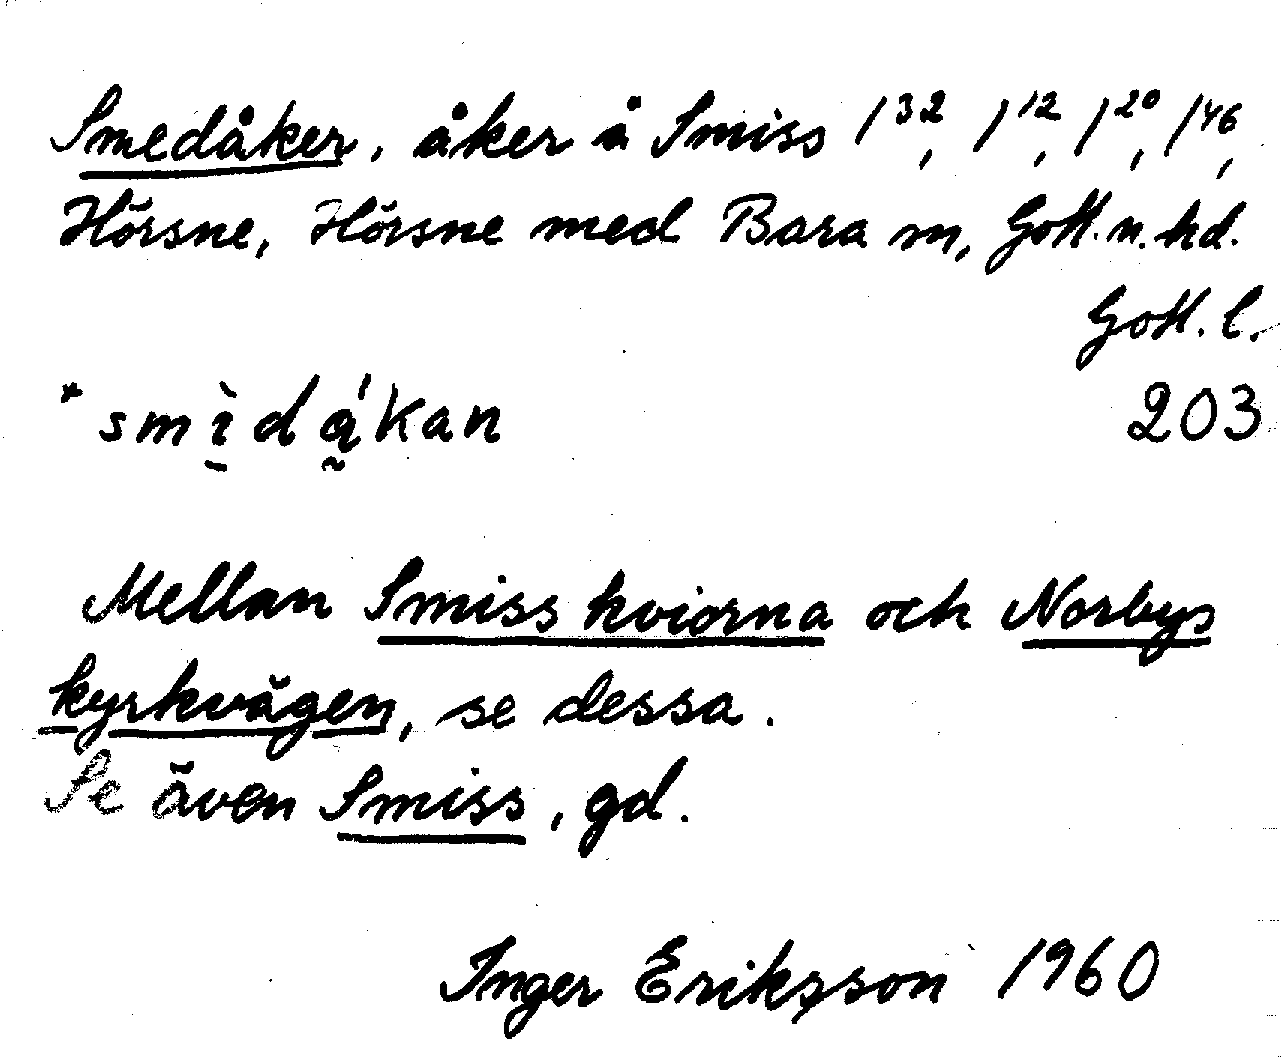 Smedåker, åker å Smiss 1³², 1¹², 1²⁰, 1⁴⁶,
Hörsne, Hörsne med Bara sn, Gotl. n. hd.
Gotl. l.
*smìdá̰kan 203
Mellan Smiss kviorna och Norbys
kyrkvägen, se dessa.
Se även Smiss, gd.
Inger Eriksson 1960